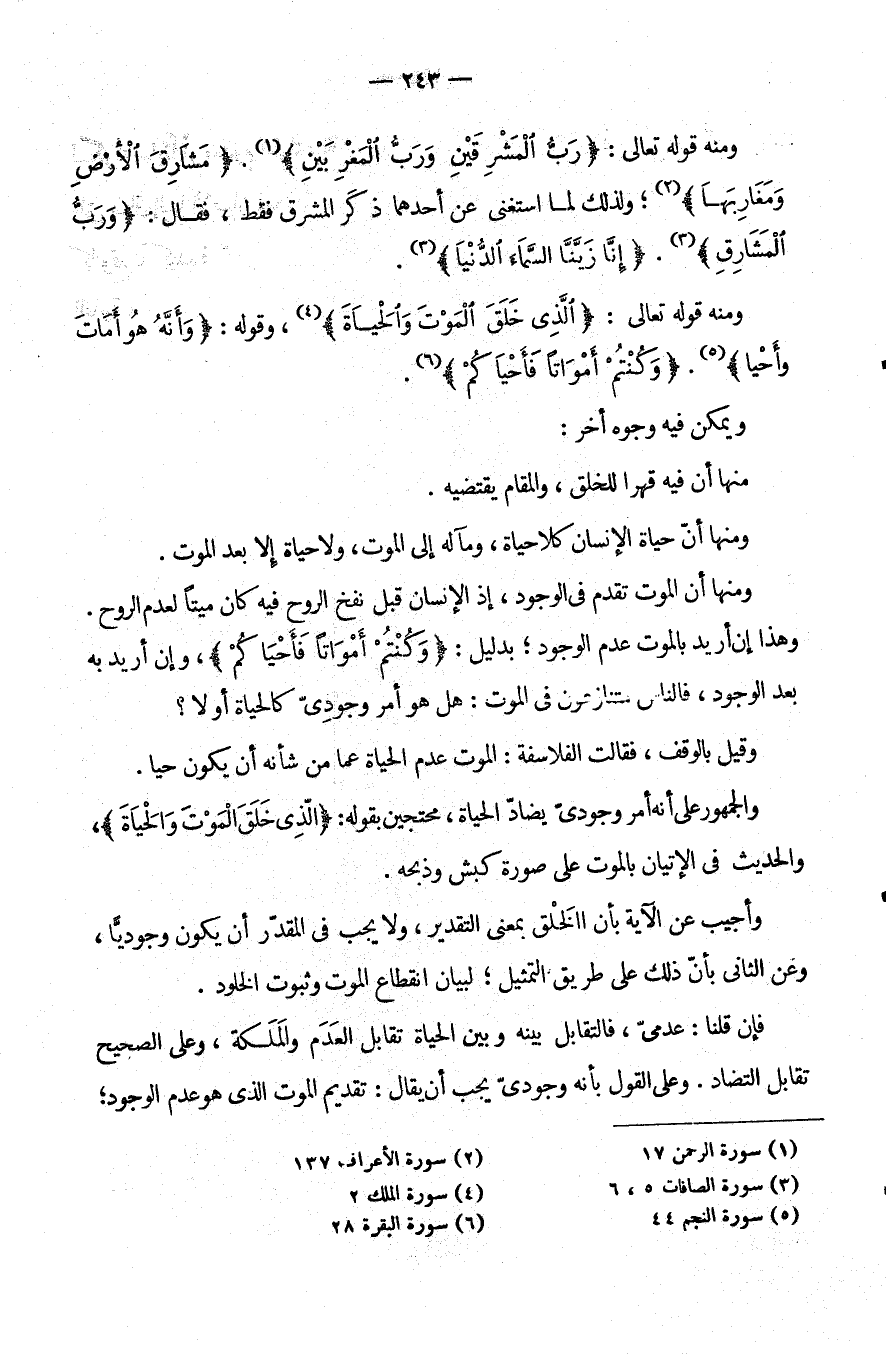 — ٢٤٣ —
ومنه قوله تعالى : ﴿ رَبُّ ٱلْمَشْرِقَيْنِ وَرَبُّ ٱلْمَغْرِبَيْنِ ﴾(١) . ﴿ مَشَارِقَ ٱلْأَرْضِ
وَمَغَارِبَهَـا ﴾(٢) ؛ ولذلك لمـا استغنى عن أحدهما ذكَر المشرق فقط ، فقـال : ﴿ وَرَبُّ
ٱلْمَشَارِقِ ﴾(٣) . ﴿ إِنَّا زَيَّنَّا السَّمَاء ٱلدُّنْيَا ﴾(٣) .
ومنه قوله تعالى : ﴿ ٱلَّذِى خَلَقَ ٱلْمَوْتَ وَٱلْحَيـاَةَ ﴾(٤) ، وقوله : ﴿ وَأَنَّهُ هُو أَمَاتَ
وأَحْيا ﴾(٥) . ﴿ وَكُنْتُمْ أَمْوَاتاً فَأَحْيَاكُمْ ﴾(٦) .
ويمكن فيه وجوه أخر :
منها أن فيه قهرا للخلق ، والمقام يقتضيه .
ومنها أنّ حياة الإنسان كلاحياة ، ومآله إلى الموت، ولاحياة إلا بعد الموت .
ومنها أن الموت تقدم فى الوجود ، إذ الإنسان قبل نفخ الروح فيه كان ميتاً لعدم الروح .
وهذا إن أريد بالموت عدم الوجود ؛ بدليل : ﴿ وَكُنْتُمْ أَمْوَاتاً فَأَحْيَاكُمْ ﴾ ، وإن أريد به
بعد الوجود ، فالناس متنازعون فى الموت : هل هو أمر وجودِىّ كالحياة أو لا ؟
وقيل بالوقف ، فقالت الفلاسفة : الموت عدم الحياة عما من شأنه أن يكون حيا .
والجمهور على أنه أمر وجودىّ يضادّ الحياة ، محتجين بقوله: ﴿الَّذِى خَلَقَ الْمَوْتَ وَالْحَيَاةَ ﴾،
والحديث فى الإتيان بالموت على صورة كبش وذبحه .
وأجيب عن الآية بأن االخَلْق بمعنى التقدير ، ولا يجب فى المقدّر أن يكون وجوديًّا ،
وعَن الثانى بأنّ ذلك على طريق التمثيل ؛ لبيان انقطاع الموت وثبوت الخلود .
فإن قلنا : عدمىّ ، فالتقابل بينه وبين الحياة تقابل العَدَم والمَلَـكة ، وعلى الصحيح
تقابل التضاد . وعلى القول بأنه وجودىّ يجب أن يقال : تقديم الموت الذى هو عدم الوجود؛
(١) سورة الرحمن ١٧
(٢) سورة الأعراف ١٣٧
(٣) سورة الصافات ٥ ، ٦
(٤) سورة الملك ٢
(٥) سورة النجم ٤٤
(٦) سورة البقرة ٢٨